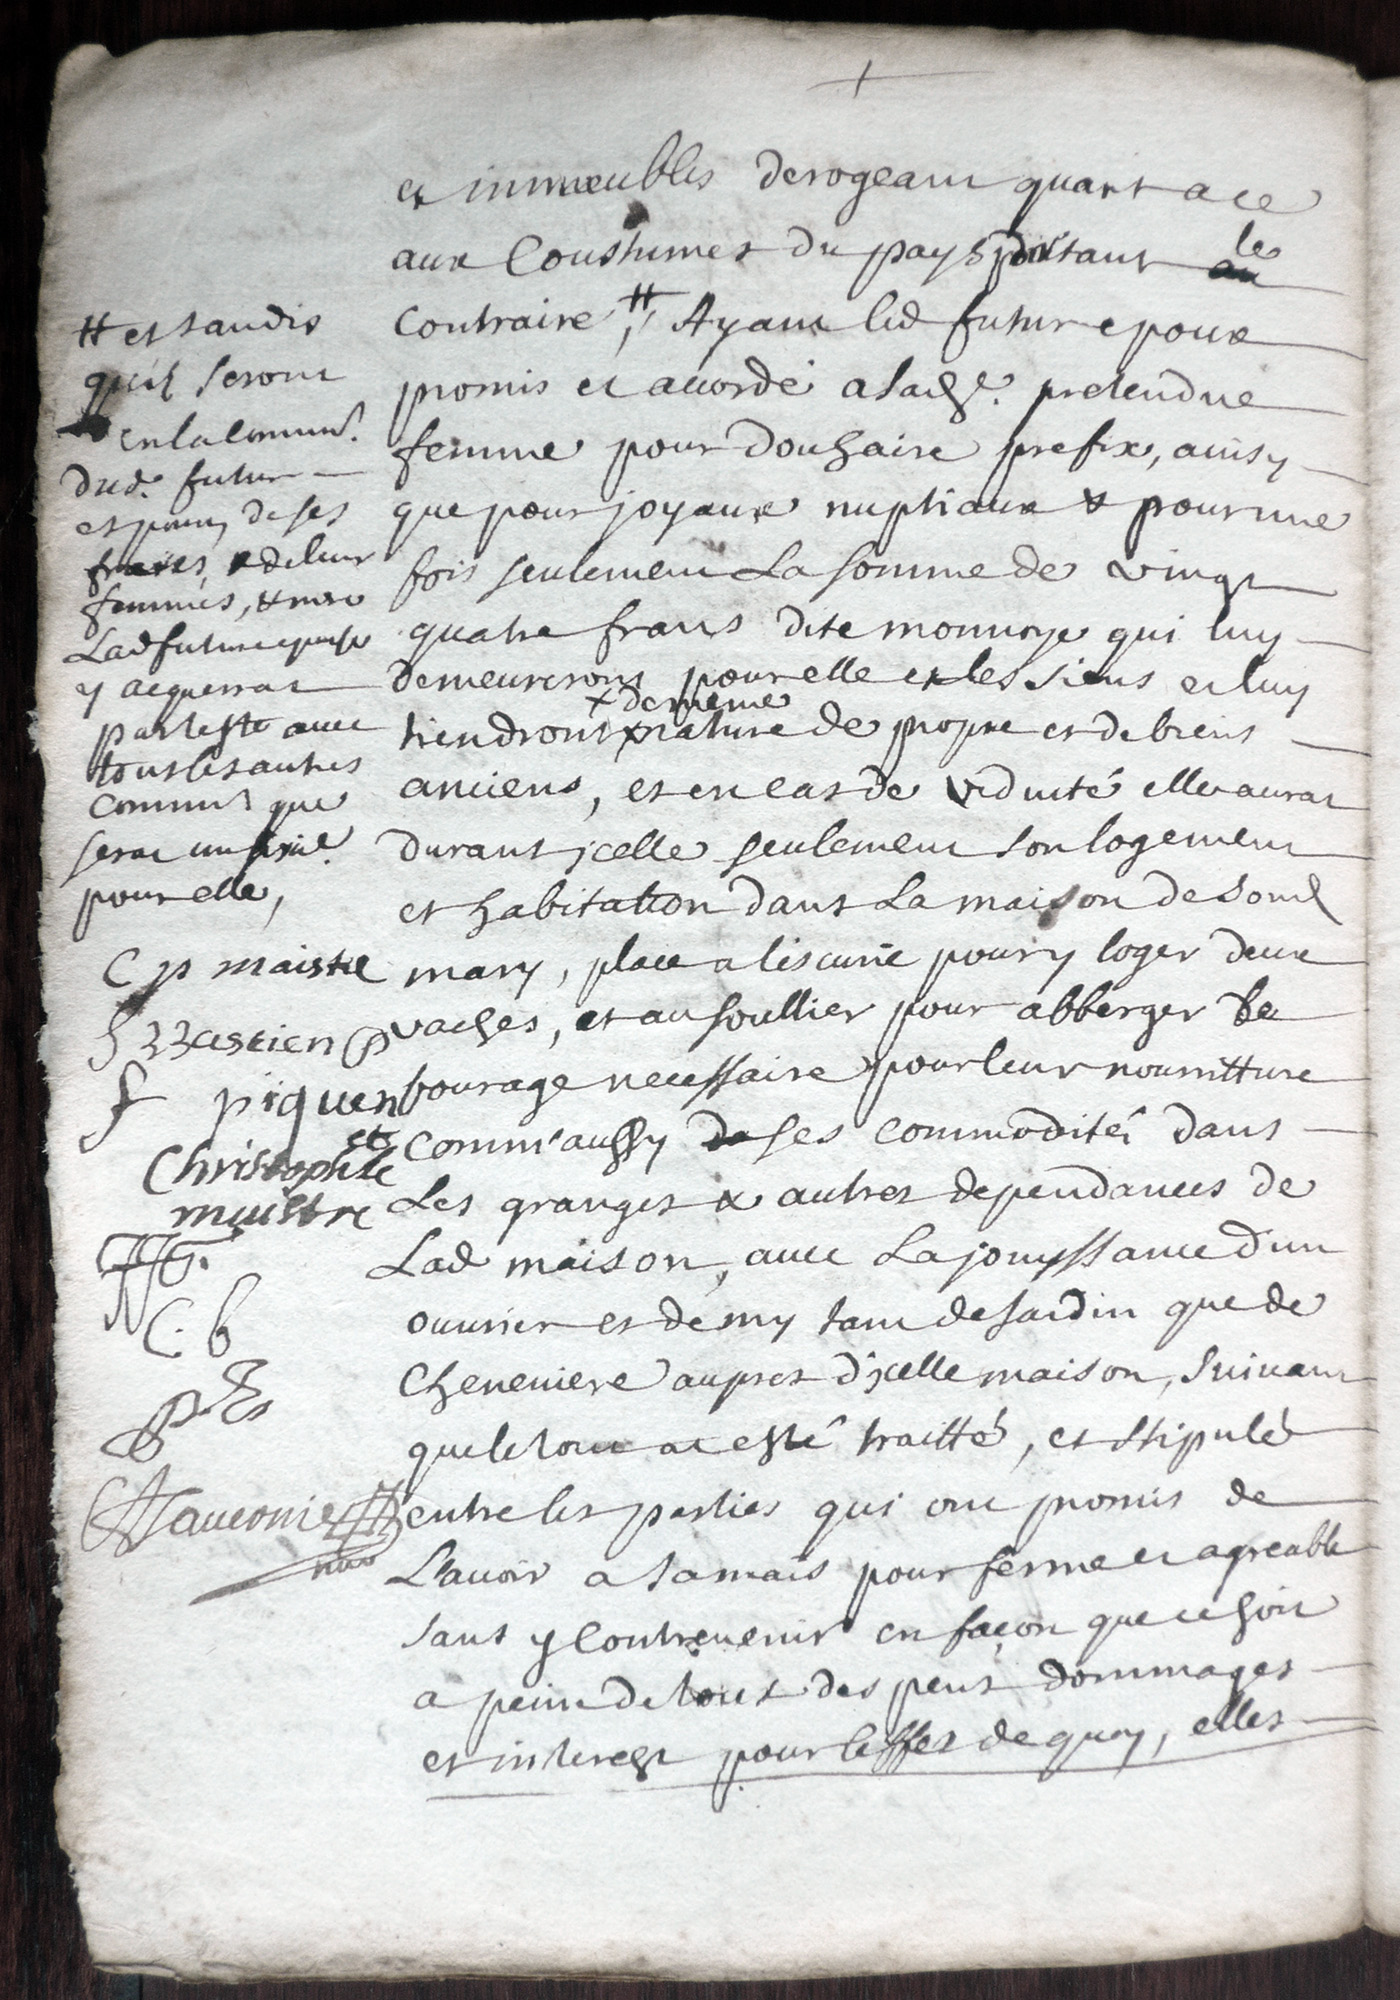 et immeubles derogeant quant a ce
aux Coustumes du pays portant le
contraire, # Ayant led futur epoux
promis et accordé a sad. pretendue
femme pour douhaire prefix, ainsy
que pour joyaux nuptiaux & pour une
fois seulement La somme de vingt
quatre frans dite monnoye qui luy
demeureront pour elle et les siens et luy
tiendront x de meme nature de propre et de biens
anciens, et en cas de viduité elle aurat
durant jcelle seulement son logement
et habitation dans La maison de sond
mary, place a lescurie pour y loger deux
vaches, et au soullier pour abberger le
fourage necessaire pour leur nourriture
comm'aussy ses commodités dans
Les granges & autres dependances de
Lad maison, avec La jouyssance d'un
ouvrier et demy tant de Jardin que de
Cheneviere aupres d'jcelle maison, suivant
que le tout at esté traitté, et stipulé
entre les parties qui ont promis de
L'avoir a Jamais pour ferme et agreable
sans y Contrevenir en façon que ce soit
a peine de tous despens dommages
et interest pour leffet de quoy, elles
# et tandis
quil seront
en la commun.
dud. futur
et de ses
freres, & de leur
femmes,
Lad future epouse
y acquerrat
par teste avec
tous les autres
communs que
serat
pour elle,
C p maistre
bastien p
f piquen
et
Christophle
maistre
C. b